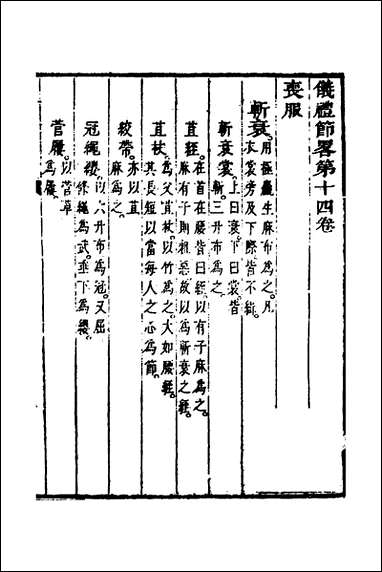 儀禮節畧第十四卷
喪服
斬衰。用極麤生麻布為之。凡
衣裳旁及下際皆不緝。
斬衰裳。上曰衰。下曰裳。皆
斬。三升布為之。
苴絰。在首在腰皆曰絰。以有子麻為之。
麻有子則粗惡。故以為斬衰之絰。
苴杖。為父苴杖。以竹為之。大如腰絰。
其長短以當每人之心為節。
絞帶。亦以苴
麻為之。
冠繩纓。以六升布為冠。又屈
繩為武。垂下為纓。
菅屨。以菅草
為屨。